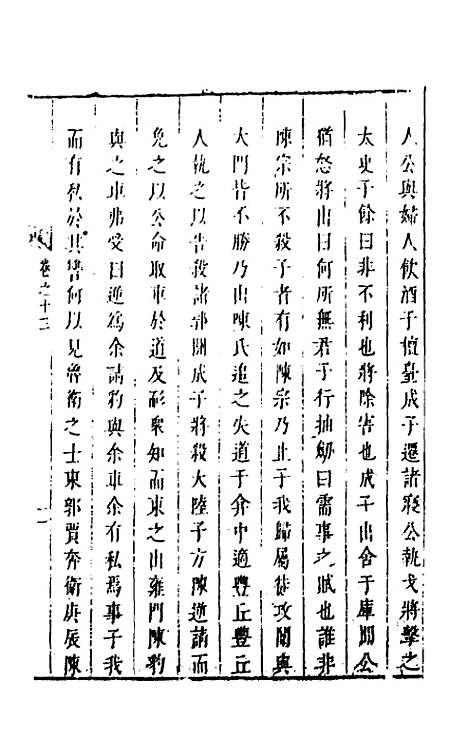 人公與婦人飲酒于檀臺成子遷諸寢公執戈將擊之
太史子餘曰非不利也將除害也成子出舍于庫聞公
猶怒將出曰何所無君子行抽劒曰需事之賊也誰非
陳宗所不殺子者有如陳宗乃止子我歸屬徒攻闈與
大門皆不勝乃出陳氏追之失道于弇中適豐丘豐丘
人執之以告殺諸郭關成子將殺大陸子方陳逆請而
免之以公命取車於道及耏衆知而東之出雍門陳豹
與之車弗受曰逆為余請豹與余車余有私焉事子我
而有私於其讐何以見魯衛之士東郭賈奔衛庚辰陳
卷之十三